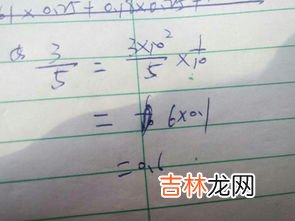 61×0.25+0.13×0.75+
3/5 = 3×10²/5 × 1/10
= 6×0.1
=0.6
吉林龙网